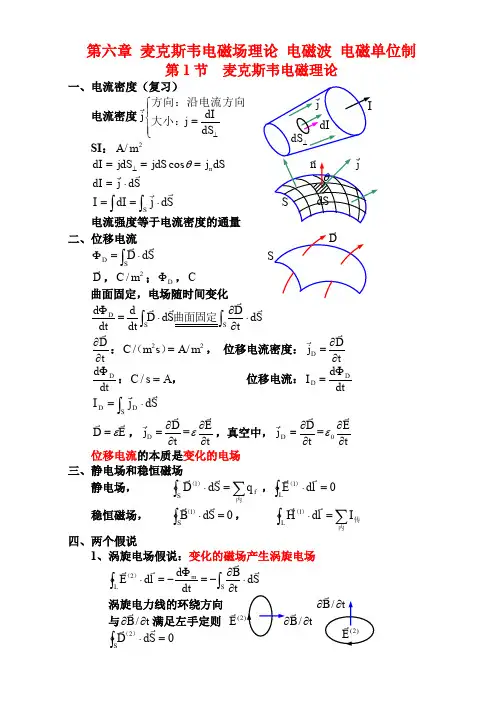 第六章 麦克斯韦电磁场理论 电磁波 电磁单位制
第1节 麦克斯韦电磁理论
一、电流密度（复习）
电流密度 $\vec{j}\begin{cases}方向：沿电流方向\\大小：j=\dfrac{dI}{dS_\perp}\end{cases}$
j
I
dI
dS⊥
SI：A/m²
$dI=jdS_\perp=jdS\cos\theta=j_n dS$
$dI=\vec{j}\cdot d\vec{S}$
$I=\int dI=\int_S \vec{j}\cdot d\vec{S}$
n
j
θ
S
dS
电流强度等于电流密度的通量
二、位移电流
$\Phi_D=\int_S \vec{D}\cdot d\vec{S}$
D
S
$\vec{D}$，C/m²；$\Phi_D$，C
曲面固定，电场随时间变化
$\dfrac{d\Phi_D}{dt}=\dfrac{d}{dt}\int_S \vec{D}\cdot d\vec{S}$ 曲面固定 $\int_S \dfrac{\partial \vec{D}}{\partial t}\cdot d\vec{S}$
$\dfrac{\partial \vec{D}}{\partial t}$：C/（m²s）=A/m²， 位移电流密度：$\vec{j}_D=\dfrac{\partial \vec{D}}{\partial t}$
$\dfrac{d\Phi_D}{dt}$：C/s=A， 位移电流：$I_D=\dfrac{d\Phi_D}{dt}$
$I_D=\int_S \vec{j}_D\cdot d\vec{S}$
$\vec{D}=\varepsilon\vec{E}$，$\vec{j}_D=\dfrac{\partial \vec{D}}{\partial t}=\varepsilon\dfrac{\partial \vec{E}}{\partial t}$，真空中，$\vec{j}_D=\dfrac{\partial \vec{D}}{\partial t}=\varepsilon_0\dfrac{\partial \vec{E}}{\partial t}$
位移电流的本质是变化的电场
三、静电场和稳恒磁场
静电场， $\oint_S \vec{D}^{(1)}\cdot d\vec{S}=\sum_{内} q_f$，$\oint_L \vec{E}^{(1)}\cdot d\vec{l}=0$
稳恒磁场， $\oint_S \vec{B}^{(1)}\cdot d\vec{S}=0$， $\oint_L \vec{H}^{(1)}\cdot d\vec{l}=\sum_{内} I_{传}$
四、两个假说
1、涡旋电场假说：变化的磁场产生涡旋电场
$\oint_L \vec{E}^{(2)}\cdot d\vec{l}=-\dfrac{d\Phi_m}{dt}=-\int_S \dfrac{\partial \vec{B}}{\partial t}\cdot d\vec{S}$
涡旋电力线的环绕方向
与$\partial\vec{B}/\partial t$满足左手定则
$\vec{E}^{(2)}$
$\partial\vec{B}/\partial t$
$\partial\vec{B}/\partial t$
$\vec{E}^{(2)}$
$\oint_S \vec{D}^{(2)}\cdot d\vec{S}=0$